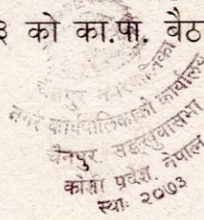 ३ को का.पा. बैठ
नगर कार्यपालिकाको कार्यालय
चैनपुर, सङ्खुवासभा
कोशी प्रदेश, नेपाल
स्था: २०७३